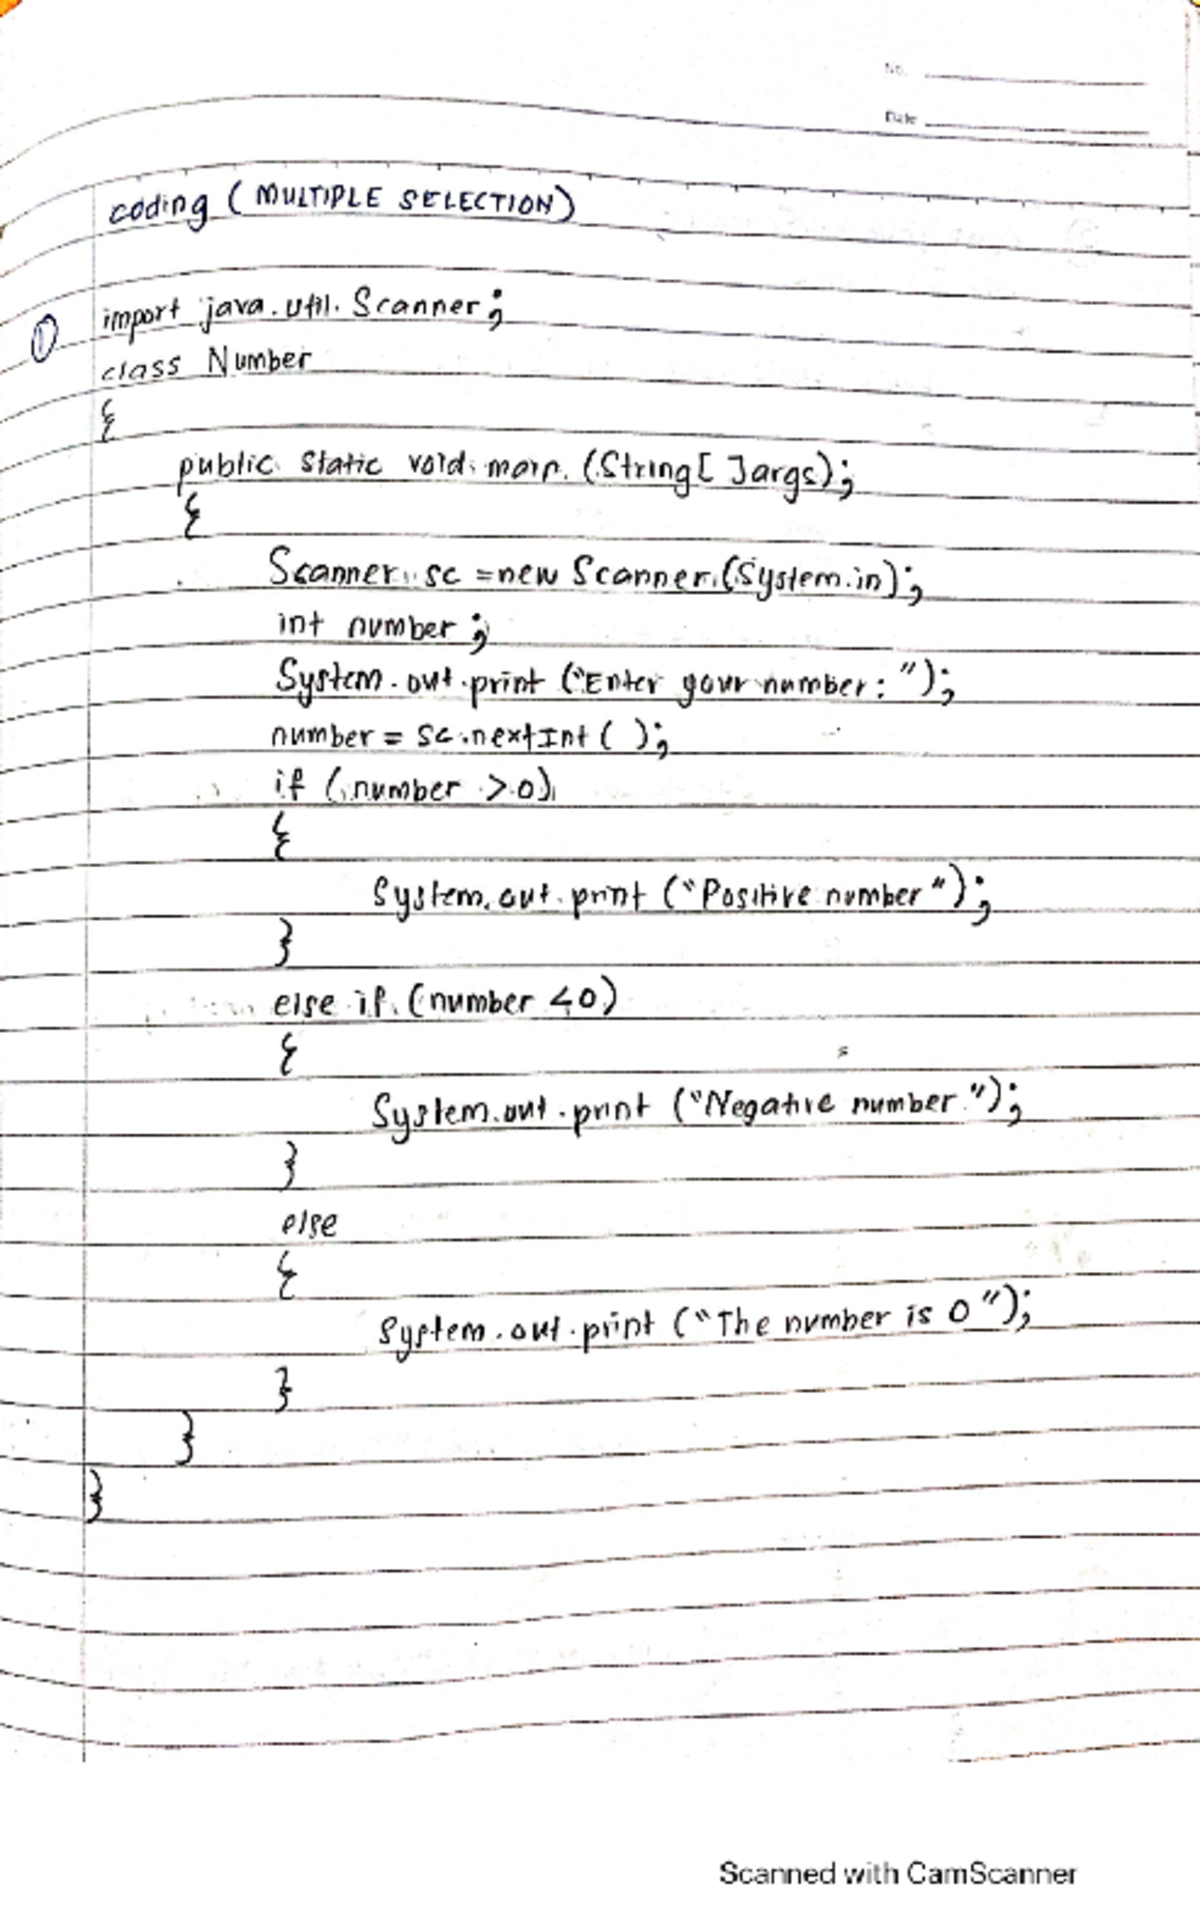 No.
Date
coding (MULTIPLE SELECTION)
① import java.util.Scanner;
class Number
{
public static void main (String[ ]args);
{
Scanner sc =new Scanner (System.in);
int number;
System.out.print ("Enter your number: ");
number = sc.nextInt ( );
if (number >0)
{
System.out.print ("Positive number");
}
else if (number <0)
{
System.out.print ("Negative number");
}
else
{
System.out.print ("The number is 0");
}
}
}
Scanned with CamScanner